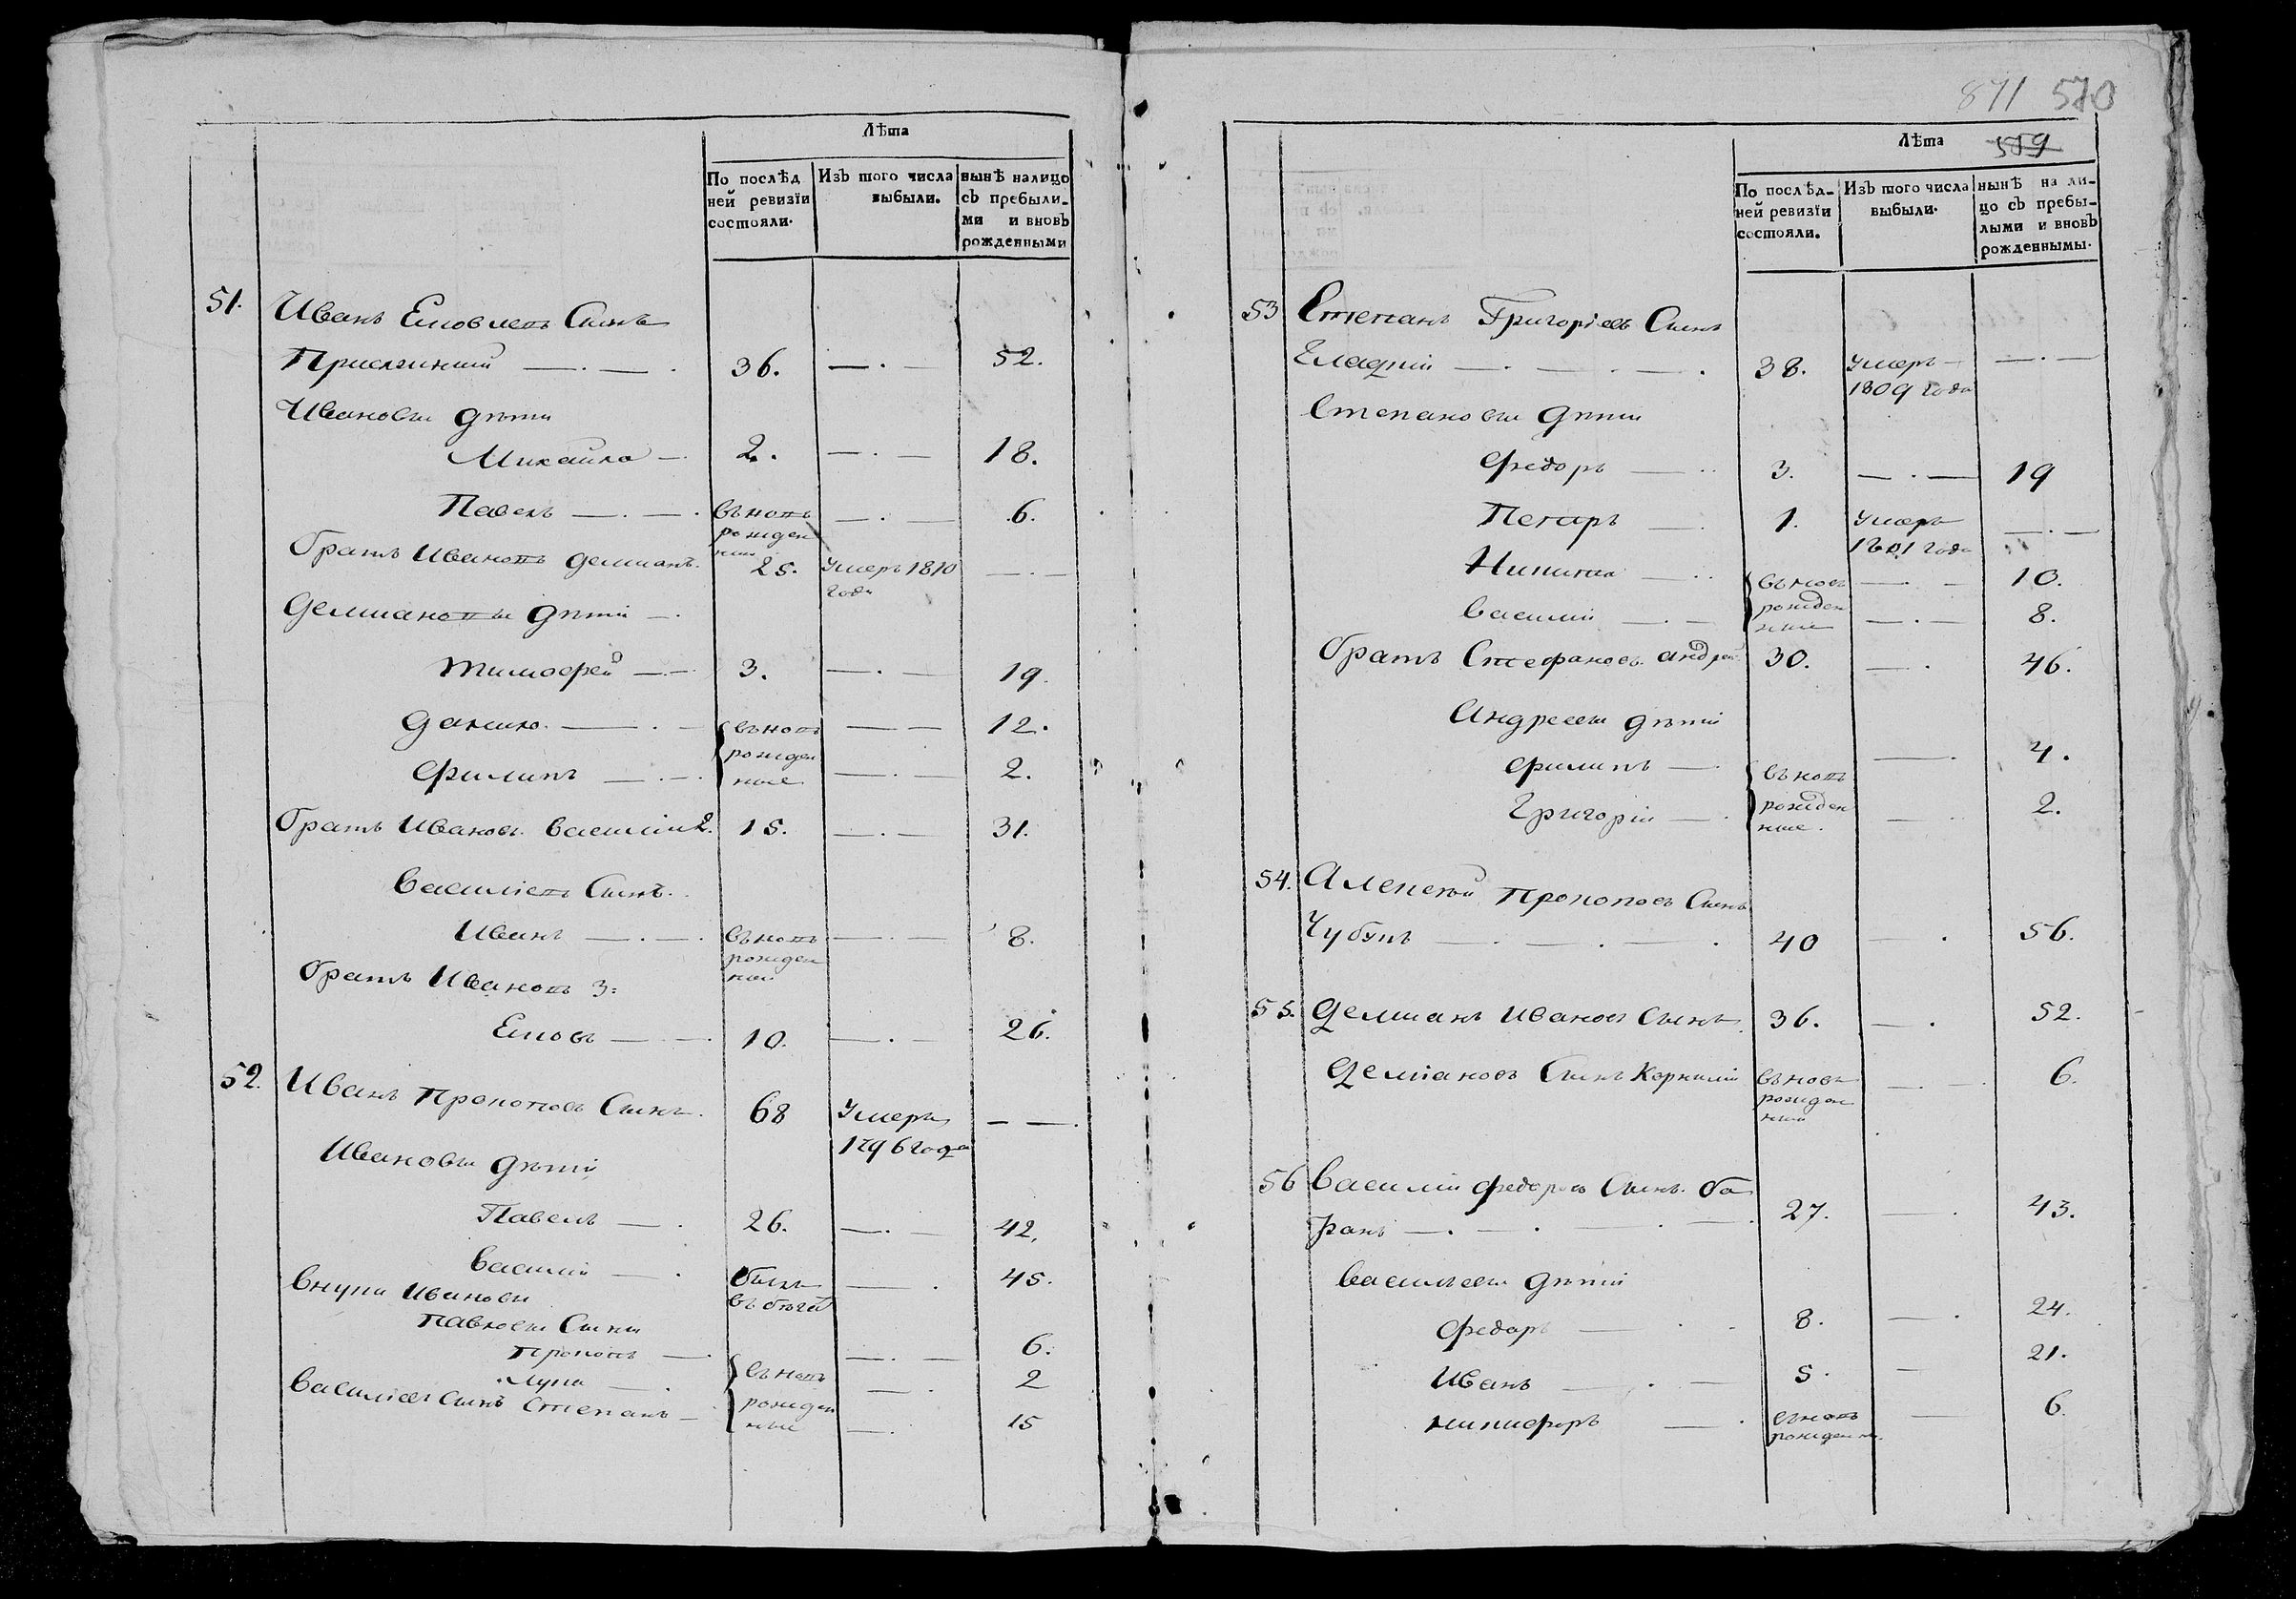 Лѣта
По послѣд
ней ревизїи
состояли.
Изъ того числа
выбыли.
нынѣ налицо
съ пребыли-
ми и вновь
рожденными
51. Иванъ Ековлевъ Сынъ
36. — . — 52.
Ивановы дѣти
Михайло — 2. — . — 18.
Павелъ — . — . вновь рожден — . — 6.
братъ Ивановъ Демианъ. 25. Умеръ 1810 года — . —
Демиановы дѣти — .
Тимофей — . — 3. — . — 19.
Данило. — . — вновь — — 12.
Филипъ — . — . рожден ные — . — 2.
братъ Ивановъ Василій 2. 15. — . — 31.
Василіевъ Сынъ.
Иванъ — . — . вновь рожден ный — . — 8.
братъ Ивановъ 3:
Ековъ — . — . 10. — . — 26.
52. Иванъ Прокоповъ Сынъ. 68 Умеръ 1796 года — — .
Ивановы дѣти
Павелъ — . 26. — . — 42.
Василій — . былъ въ бѣгах — . 45.
внуки Ивановы
Павловы Сыни
Прокопъ — . вновь — . — 6.
Лука — . рожден — . 2
Василіевъ Сынъ Степанъ — ные — . 15
871 570
Лѣта 569
По послѣд-
ней ревизїи
состояли.
Изъ того числа
выбыли.
нынѣ на ли-
цо съ пребы-
лыми и вновь
рожденнымы.
53 Степанъ Григоріевъ Сынъ
Гладкій — . — . — . 38. Умеръ — 1809 года — . —
Степановы дѣти
Федоръ — . . 3. — . — 19
Петаръ — . 1. Умеръ 1801 года — . —
Никита — . . вновь — . — 10.
Василій — . — рожден ные — . — 8.
братъ Стефановъ Андрей 30. — . 46.
Андреевы дѣти
Филипъ — . вновь — . 4.
Григорій — . рожден ные. — . 2.
54. Алексѣй Прокоповъ Сынъ
Чубукъ — . — . — . 40 — . 56.
55. Демианъ Ивановъ Сынъ 36. — . 52.
Деміановъ Сынъ Корнилій вновь рожден ный — . 6.
56 Василій Федоровъ Сынъ Ба
ранъ — . — . — . — . 27. — . 43.
Васильевы дѣти
Федоръ — . - 8. — . 24.
Иванъ — . — 5. — 21.
Никифоръ — . вновь рожден — 6.